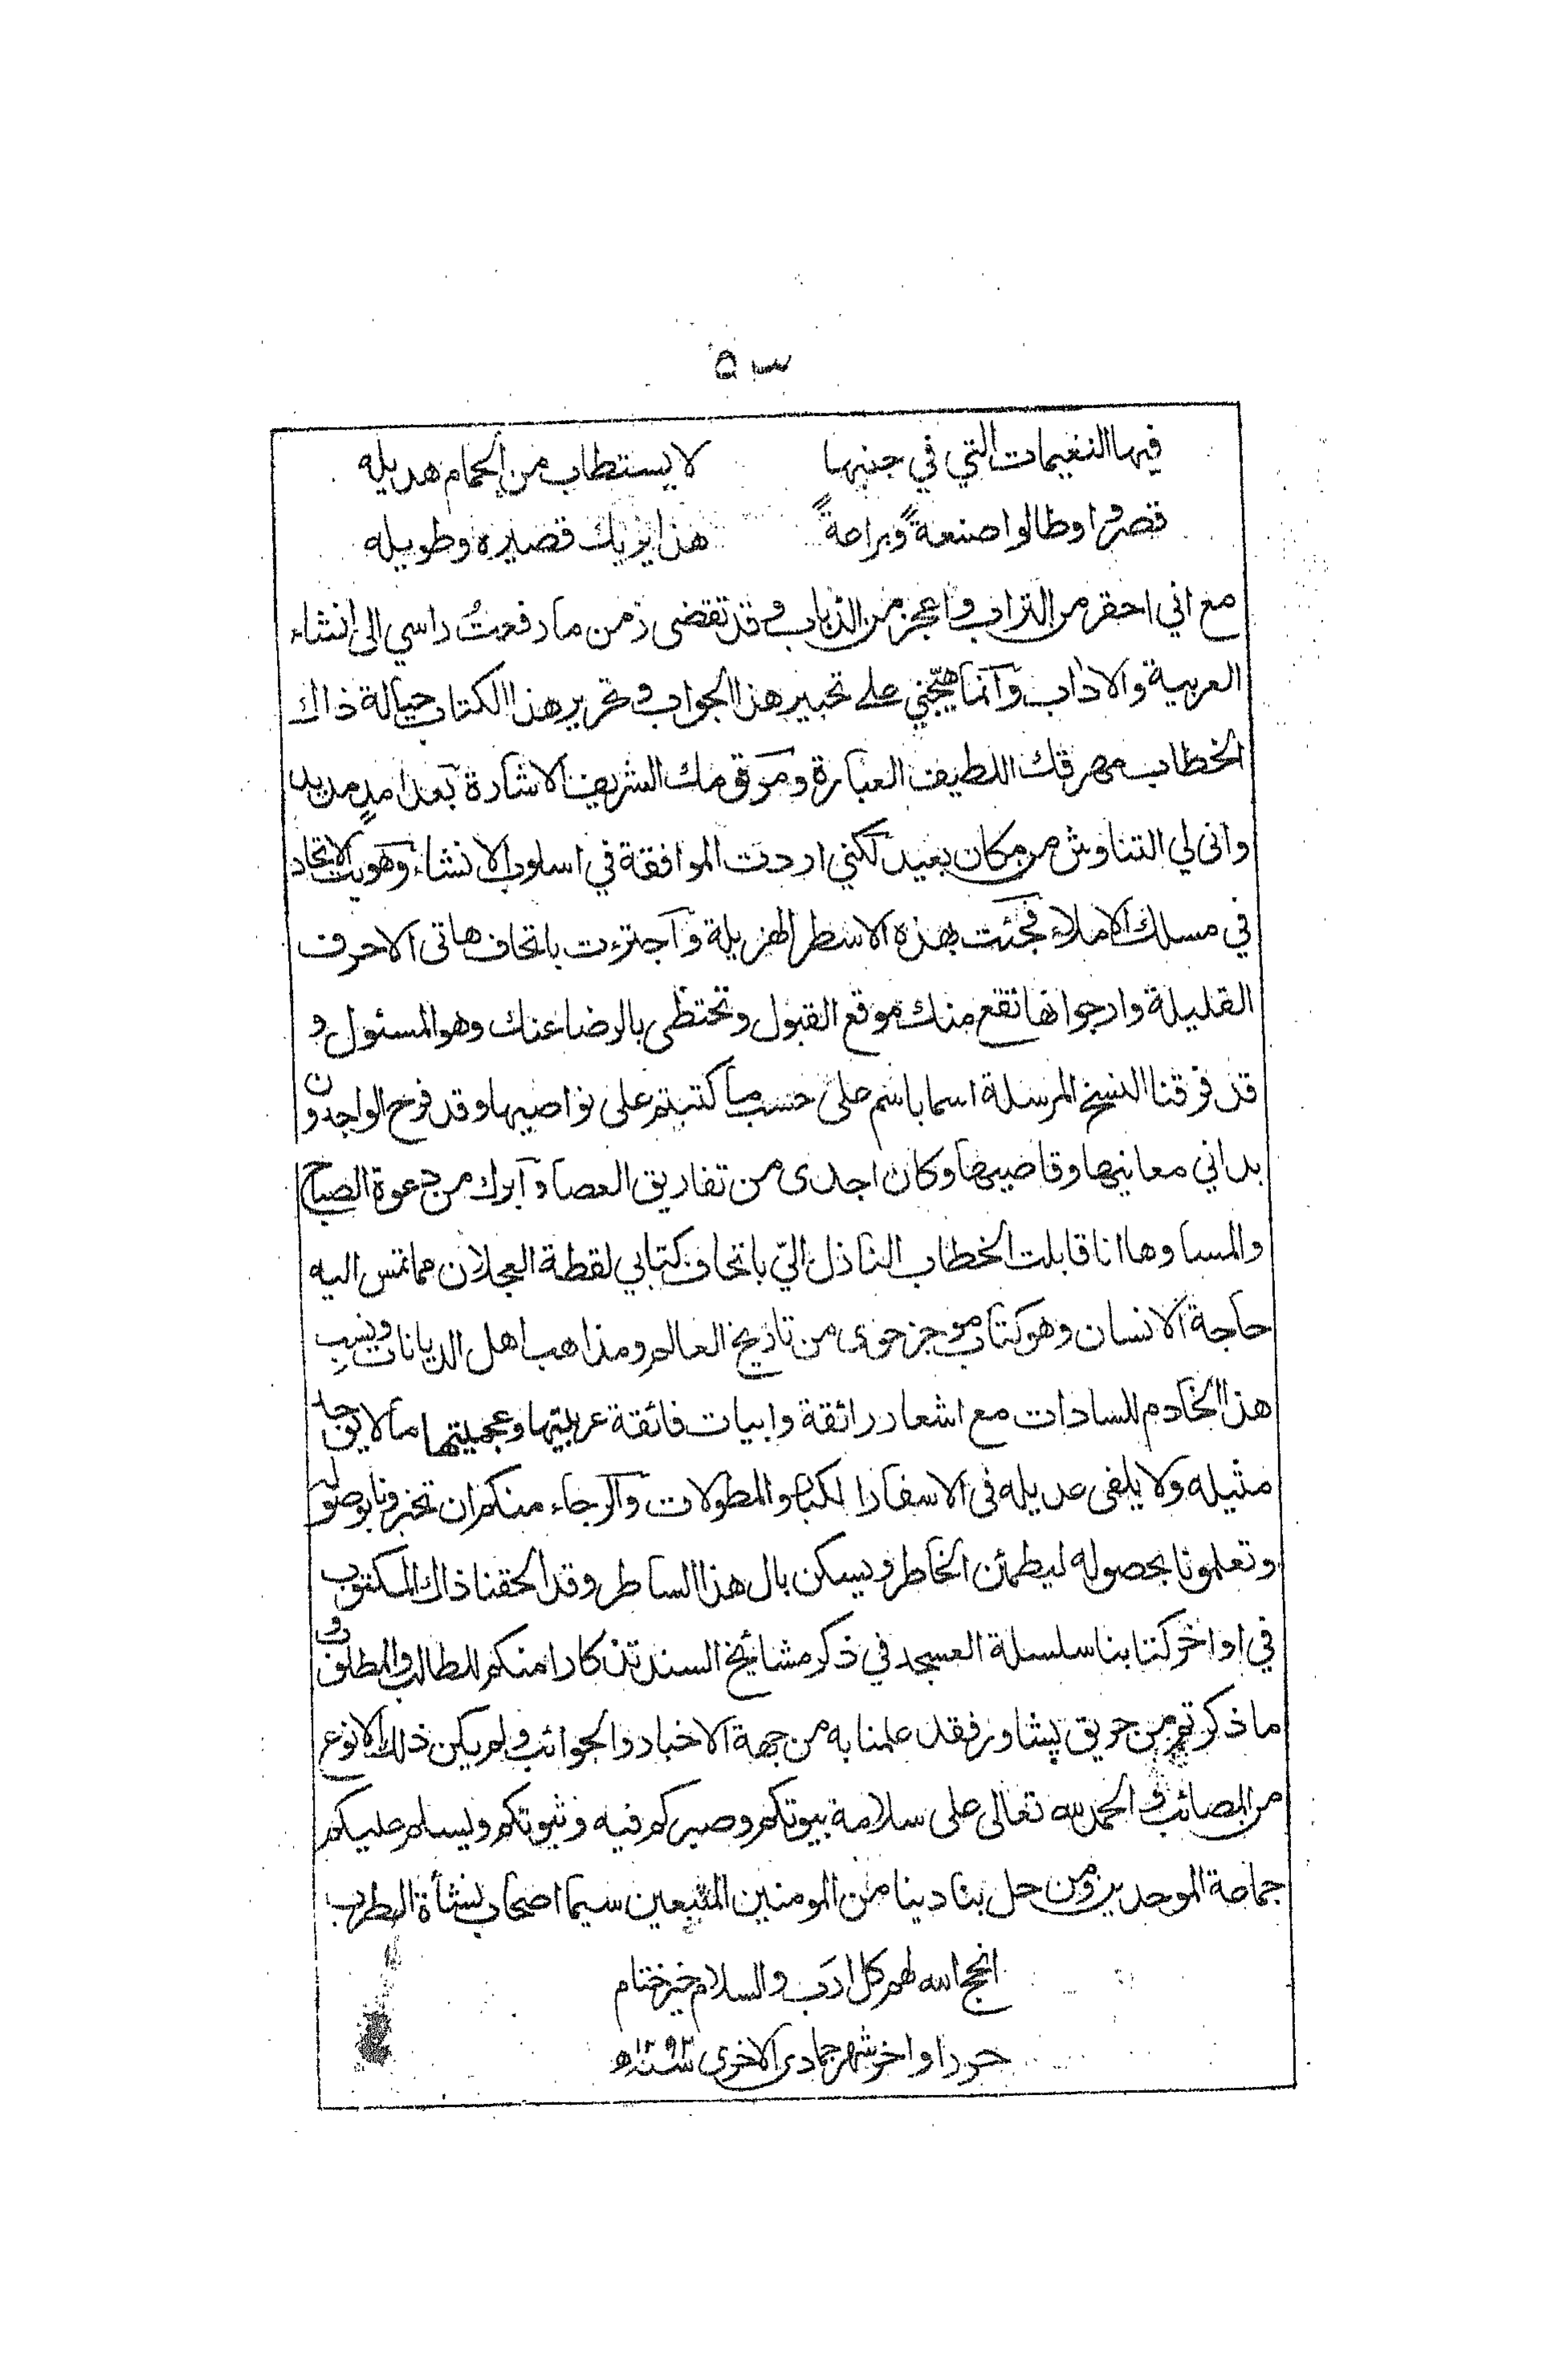 ٥٣
فيها النغيمات التي في جنبها لا يستطاب من الحمام هديله
قصروا وطالوا صنعةً وبراعةً هذا يريك قصيره وطويله
مع اني احقر من التراب واعجز من الذباب وقد تقضى زمن ما رفعتُ راسي الى انشاء
العربية والاداب وانما هيّجني على تحبير هذا الجواب وتحرير هذا الكتاب حيالة ذاك
الخطاب مهرقك اللطيف العبارة ومرقومك الشريف الاشارة بعد امدٍ مديد
وانى لي التناوش من مكان بعيد لكني اردت الموافقة في اسلوب الانشاء وهويت الاتحاد
في مسلك الاملاء فجئت بهذه الاسطر الهزيلة واجتزءت باتحاف هاتى الاحرف
القليلة وارجو انها تقع منك موقع القبول وتحتظى بالرضا عنك وهو المسئول و
قد فرقنا النسخ المرسلة اسما باسم على حسب ما كتبتم على نواصيها وقد فرح الواجدون
بداني معانيها وقاصيها وكان اجدى من تفاريق العصا وابرك من دعوة الصباح
والمسا وها انا قابلت الخطاب النازل اليّ باتحاف كتابي لقطة العجلان مما تمس اليه
حاجة الانسان وهو كتاب موجز حوى من تاريخ العالم ومذاهب اهل الديانات ونسب
هذا الخادم للسادات مع اشعار رائقة وابيات فائقة عربيتها وعجميتها ما لا يوجد
مثيله ولا يلفى عديله فى الاسفار الكبار والمطولات والرجاء منكم ان تخبرونا بوصوله
وتعلمونا بحصوله ليطمئن الخاطر ويسكن بال هذا الساطر وقد الحقنا ذاك المكتوب
في اواخر كتابنا سلسلة العسجد في ذكر مشائخ السند تذكارا منكم للطالب والمطلوب
ما ذكرتم من حريق پشاور فقد علمنا به من جهة الاخبار والجوائب ولم يكن ذلك الا نوع
من المصائب والحمد لله تعالى على سلامة بيوتكم وصبركم فيه وثبوتكم ويسلم عليكم
جماعة الموحدين ومن حل بنادينا من المومنين المتبعين سيما اصحاب نشأة الطرب
انجح الله لهم كل ارب والسلام خير ختام
حرر اواخر شهر جمادى الاخرى سنه ١٢٩٣ه